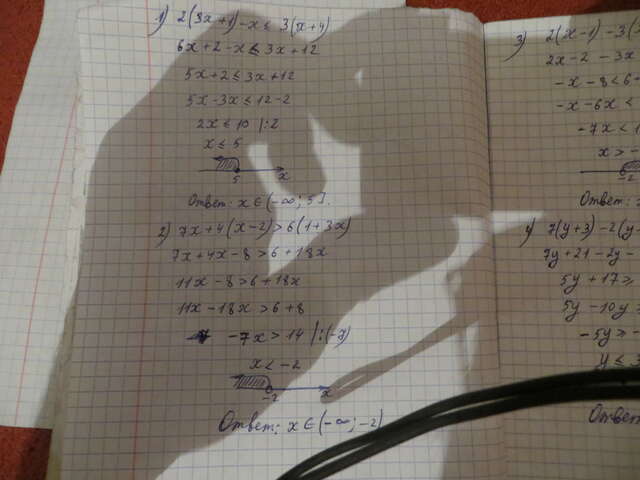 1) 2(3x+1)-x ≤ 3(x+4)
6x+2-x ≤ 3x+12
5x+2 ≤ 3x+12
5x-3x ≤ 12-2
2x ≤ 10 |:2
x ≤ 5
5 x
Ответ: x ∈ (-∞; 5].
2) 7x+4(x-2) > 6(1+3x)
7x+4x-8 > 6+18x
11x-8 > 6+18x
11x-18x > 6+8
-7x > 14 |:(-7)
x < -2
-2 x
Ответ: x ∈ (-∞; -2)
3) 2(x-1)-3(
2x-2-3x
-x-8 < 6-
-x-6x <
-7x < 1
x > -
-2
Ответ:
4) 7(y+3)-2(y-
7y+21-2y-
5y+17 ≥
5y-10y ≥
-5y ≥ -
y ≤ 3
Ответ